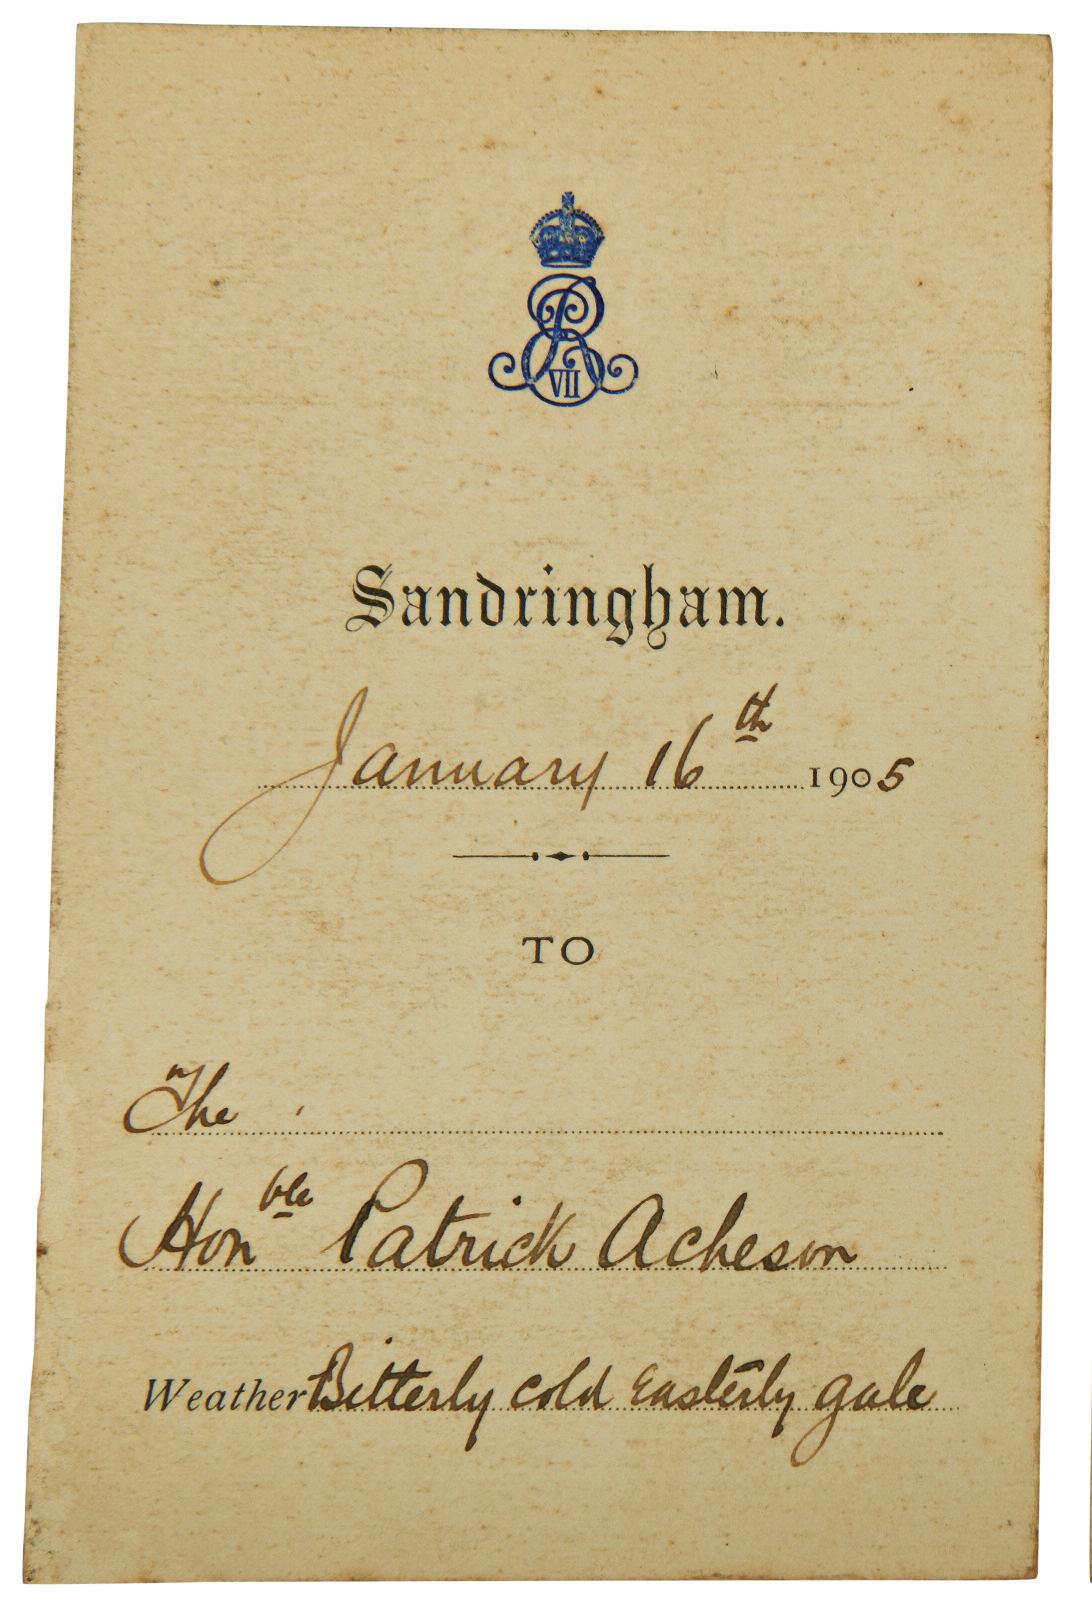 ER
VII
Sandringham.
January 16th 1905
TO
The
Honble Patrick Acheson
Weather Bitterly cold Easterly gale